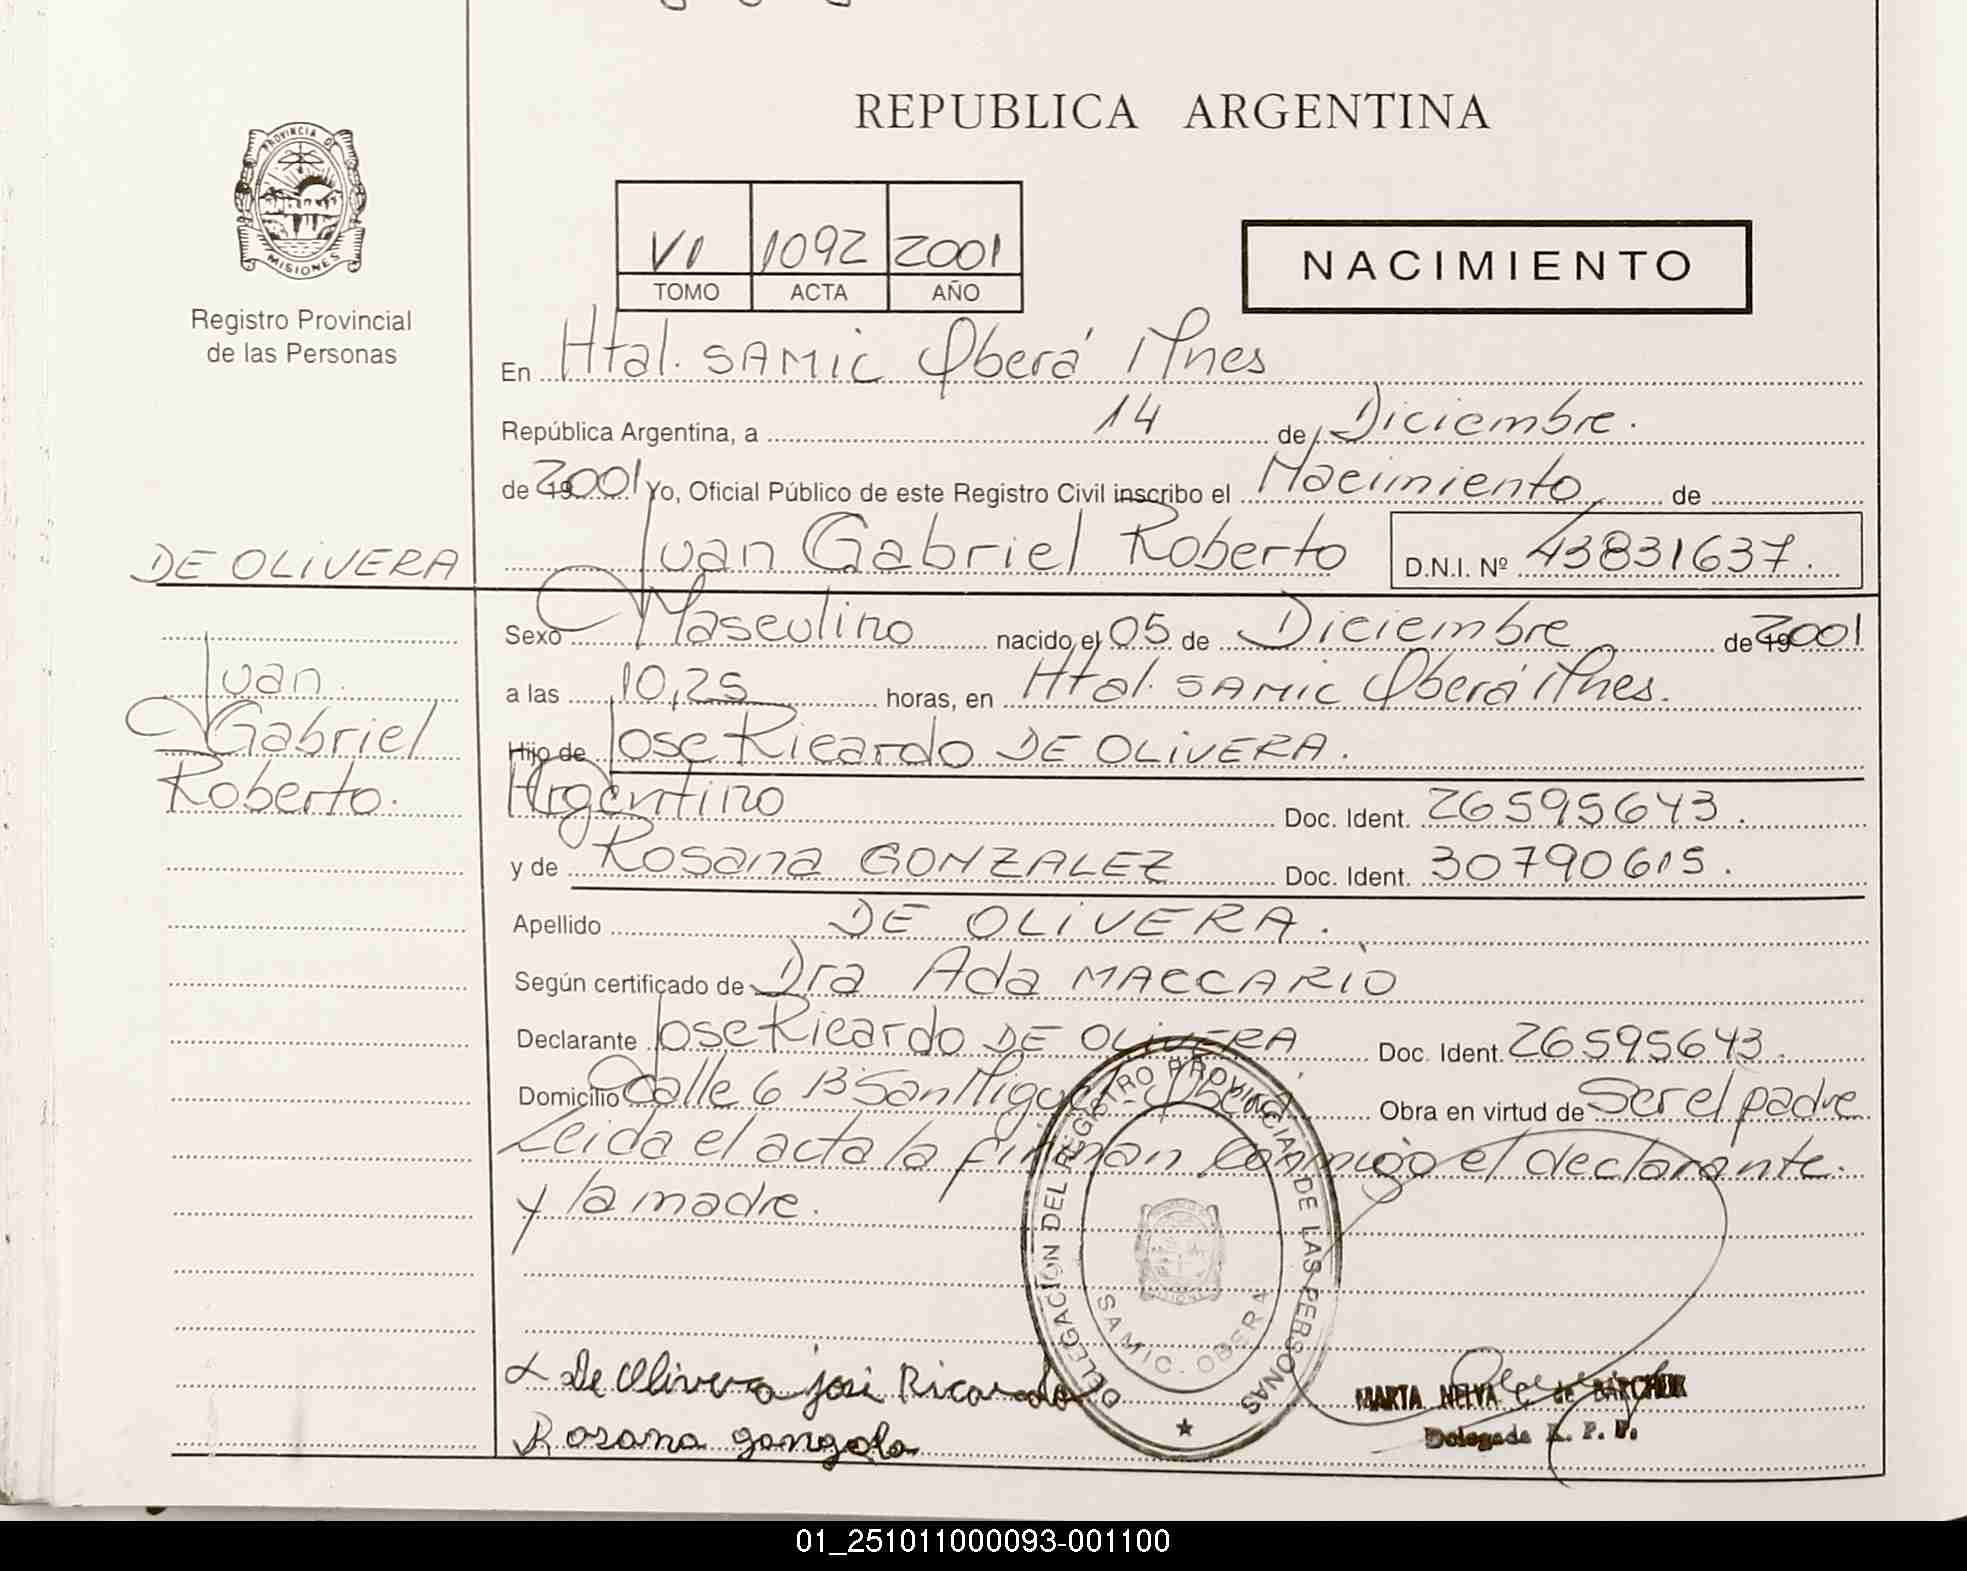 REPUBLICA ARGENTINA
PROVINCIA DE
MISIONES
Registro Provincial
de las Personas
VI 1092 2001
TOMO ACTA AÑO
NACIMIENTO
En Htal. SAMIC Oberá Mnes
República Argentina, a 14 de Diciembre.
de 2001 Yo, Oficial Público de este Registro Civil inscribo el Nacimiento de
DE OLIVERA
Juan Gabriel Roberto D.N.I. Nº 43831637.
Sexo Masculino nacido el 05 de Diciembre de 2001
Juan
Gabriel
Roberto.
a las 10,25 horas, en Htal. SAMIC Oberá Mnes.
Hijo de Jose Ricardo DE OLIVERA.
Argentino Doc. Ident. 26595643.
y de Rosana GONZALEZ Doc. Ident. 30790615.
Apellido DE OLIVERA.
Según certificado de Dra Ada MACCARIO
Declarante Jose Ricardo DE OLIVERA Doc. Ident. 26595643.
Domicilio Calle 6 Bº San Miguel - Oberá Obra en virtud de Ser el padre
Leida el acta la firman conmigo el declarante
y la madre.
DELEGACIÓN DEL REGISTRO PROVINCIAL DE LAS PERSONAS
SAMIC. OBERA
De Olivera josi Ricardo
Rosana
MARTA NELVA C. de BARCHUK
Delegada R. P. P.
01_251011000093-001100